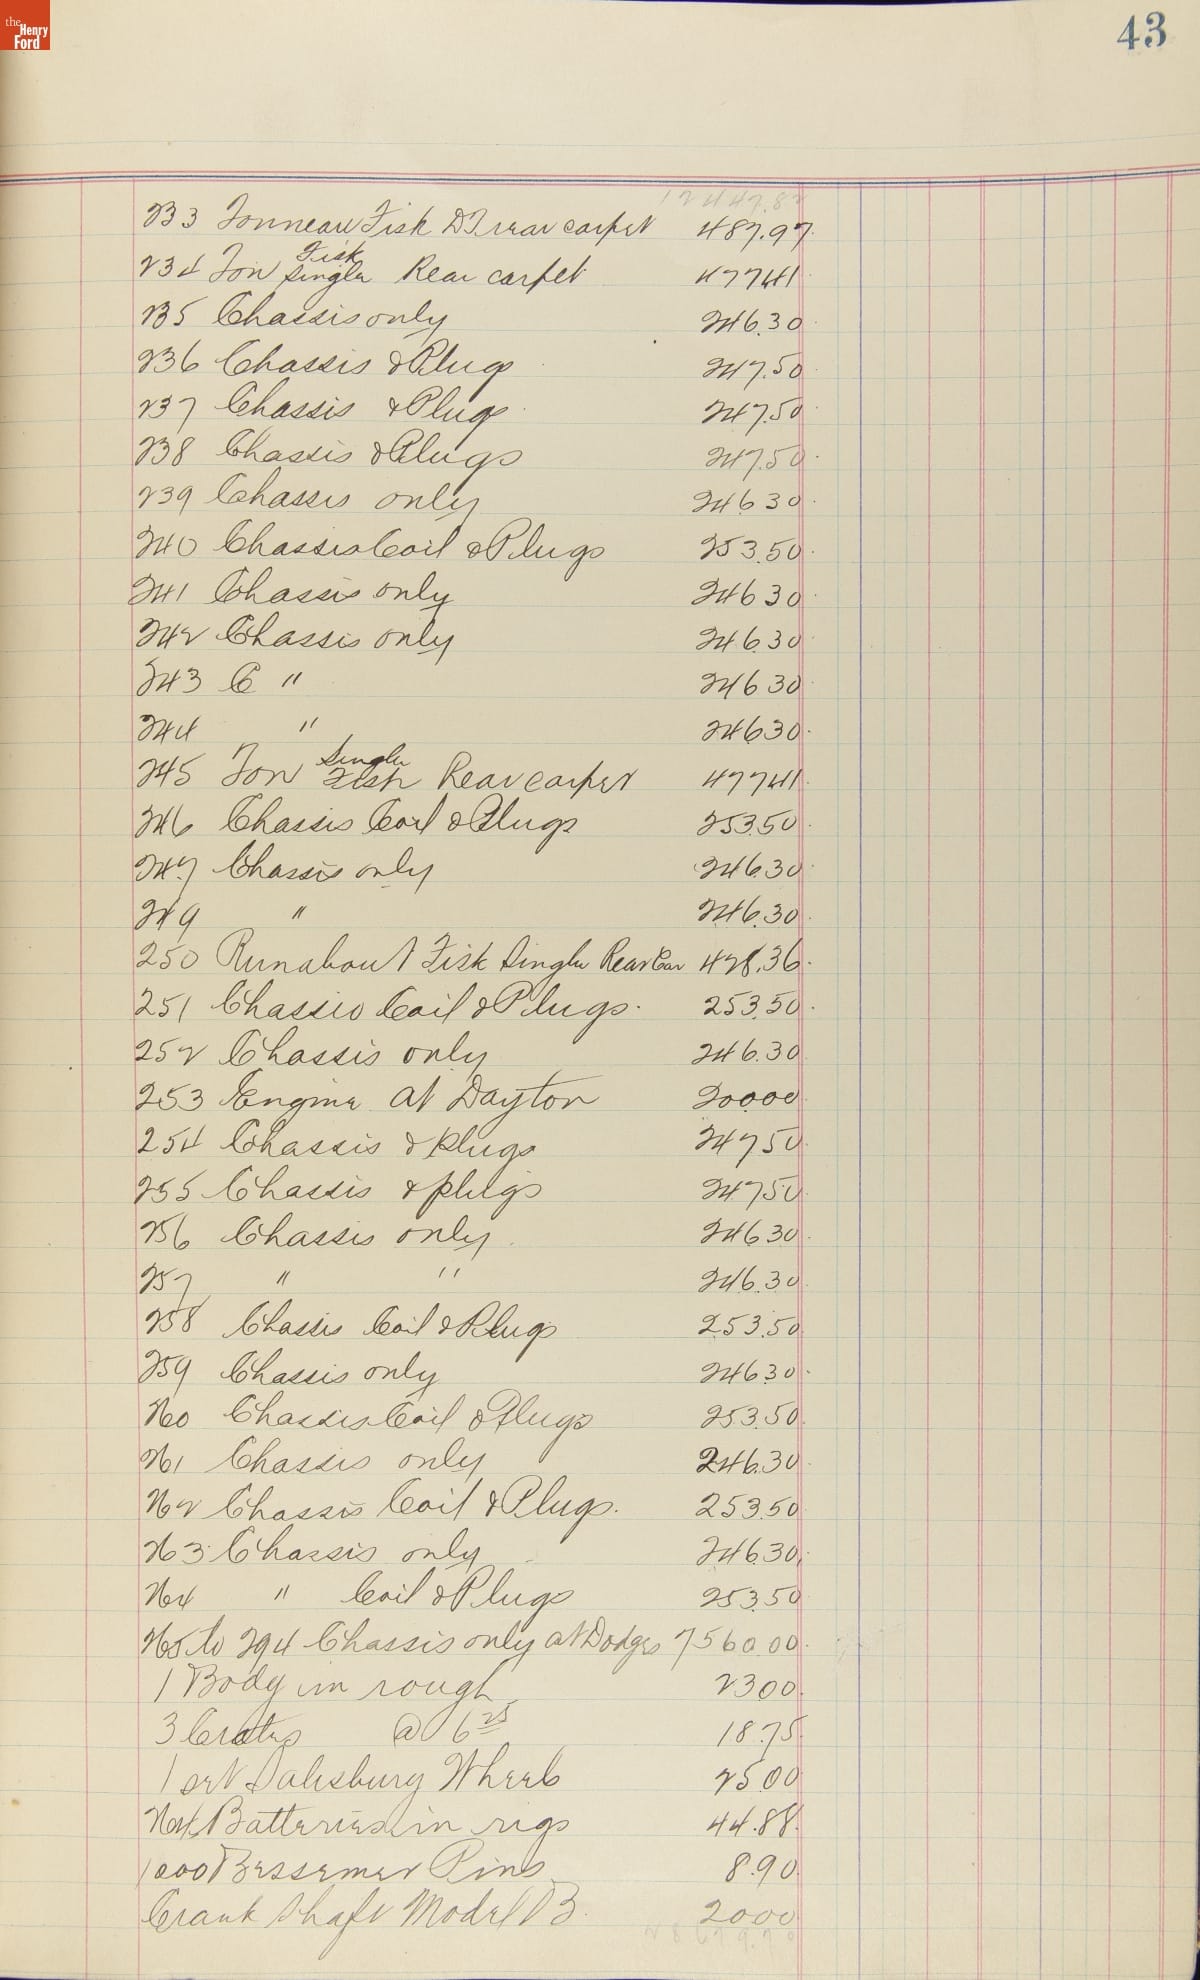 the
Henry
Ford
43
12447.82
233 Tonneau Fisk DT rear carpet 487.97
234 Ton Fisk Single Rear carpet 477 41
235 Chassis only 246.30
236 Chassis & Plugs 247.50
237 Chassis & Plugs 247.50
238 Chassis & Plugs 247.50
239 Chassis only 246 30
240 Chassis Coil & Plugs 253.50
241 Chassis only 246 30
242 Chassis only 246.30
243 C " 246 30
244 " 246 30
245 Ton Single Fisk Rear carpet 477 41
246 Chassis Coil & Plugs 253.50
247 Chassis only 246.30
249 " 246.30
250 Runabout Fisk Single Rear Car 428.36
251 Chassis Coil & Plugs. 253.50
252 Chassis only 246.30
253 Engine at Dayton 200 00
254 Chassis & Plugs 247 50
255 Chassis & plugs 247 50
256 Chassis only 246 30
257 " " 246.30
258 Chassis Coil & Plugs 253.50
259 Chassis only 246 30
260 Chassis Coil & Plugs 253.50
261 Chassis only 246.30
262 Chassis Coil & Plugs. 253.50
263 Chassis only 246.30
264 " Coil & Plugs 253.50
265 to 294 Chassis only at Dodges 7560.00
1 Body in rough 23 00
3 Crates @ 6 25 18.75
1 set Salesbury Wheels 25 00
264 Batteries in rigs 44.88
1000 Bessemer Pins 8.90
Crank Shaft Model B. 20 00